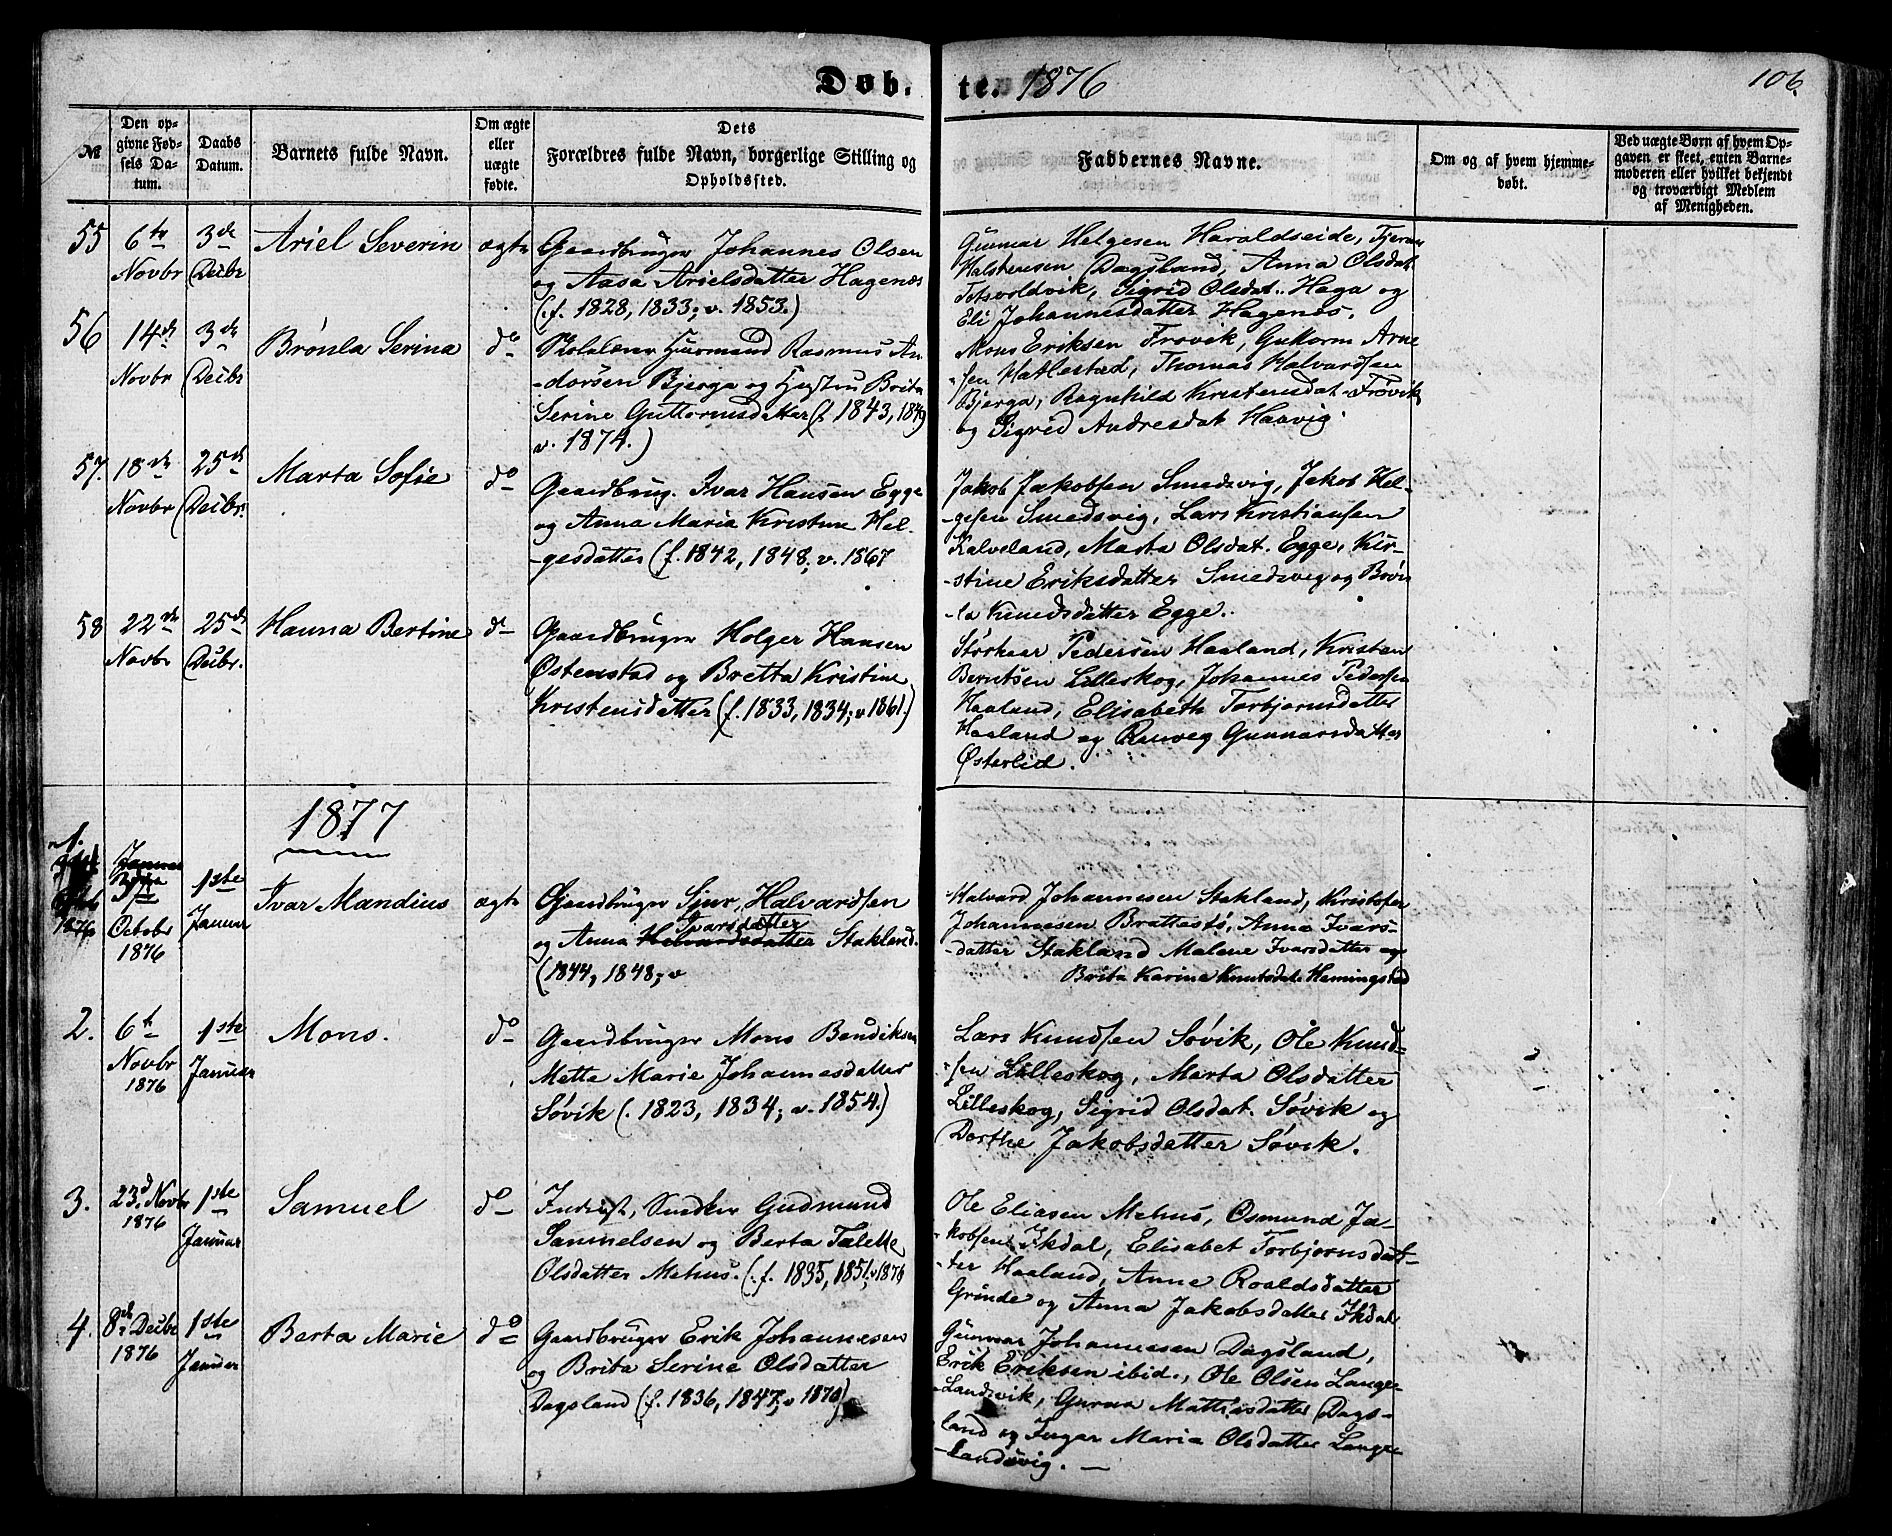 Døb.
te. 1876
106.
№
Den opgivne Fødsels Datum.
Daabs Datum.
Barnets fulde Navn.
Om ægte eller uægte fødte.
Dets Forældres fulde Navn, borgerlige Stilling og Opholdssted.
Faddernes Navne.
Om og af hvem hjemmedøbt.
Ved uægte Børn af hvem Opgaven er skeet, enten Barnemoderen eller hvilket bekjendt og troværdigt Medlem af Menigheden.
55
6te Novbr
3de Decbr
Ariel Severin
ægte
Gaardbruger Johannes Olsen
og Aasa Arielsdatter Hagenæs
(f. 1828, 1833; v. 1853.)
Gunnar Helgesen Haraldseide, Tjeran
Halstensen Dagsland, Anna Olsdat.
Totsvoldvik, Sigrid Olsdat. Haga og
Eli Johannesdatter Hagenæs.
56
14de Novbr
3de Decbr
Brønla Serina
do
Skolelærer Huusmand Rasmus An-
-dersen Bjerga og Hustru Brita
Serine Guttormsdatter (f. 1843, 1849
v. 1874.)
Mons Eriksen Frøvik, Guttorm Arne
-sen Hatlestad, Thomas Halvardsen
Bjerga, Ragnhild Kristensdat. Frøvik
og Sigrid Andresdat Haavig
57.
18de Novbr
25de Decbr.
Marta Sofie
do
Gaardbrug. Ivar Hansen Egge
og Anna Maria Kristine Hel-
-gesdatter (f. 1842, 1848; v. 1867
Jakob Jakobsen Smedsvig, Jakob Hel-
-gesen Smedsvig, Lars Kristiansen
Kalveland, Marta Olsdat. Egge, Kir-
-stine Eriksdatter Smedsvig og Brøn
-la Knudsdatter Egge.
58
22de Novbr
25de Decbr.
Hanna Bertine
do
Gaardbruger Holger Hansen
Østenstad og Bretta Kristine
Kristensdatter (f. 1833, 1834; v 1861.)
Størkaar Pedersen Haaland, Kristen
Berntsen Lilleskog, Johannes Pedersen
Haaland, Elisabeth Torbjørnsdatter
Haaland og Ranveg Gunnarsdatter
Østerlid.
1877
1.
1876
Januar
3die
Octobr
1876
1ste Januar
Ivar Mandius
ægte
Gaardbruger Sjur Halvardsen
Ivarsdatter
og Anna Stakland.
(1844, 1848; v
Halvard Johannesen Stakland, Kristofer
Johannesen Brattestø, Anna Ivars-
-datter Stakland Malene Ivarsdatter og
Brita Karina Knutsdatr Hemingstad
2.
6te Novbr 1876
1ste Januar
Mons.
do
Gaardbruger Mons Bendiksen
Metta Marie Johannesdatter
Søvik (. 1823, 1834; v. 1854.)
Lars Knudsen Søvik, Ole Knud-
-sen Lilleskog, Marta Olsdatter
Lilleskog, Sigrid Olsdat. Søvik og
Dorthe Jakobsdatter Søvik.
3.
23d Novbr 1876
1ste Januar
Samuel
do
Inderst, Snedker Gudmund
Samuelsen og Berta Talette
Olsdatter Mehus. (.f. 1835, 1851; v 1876
Ole Eliasen Mehus, Osmund Ja-
-kobsen Ikdal, Elisabet Torbjørnsdat-
-ter Haaland, Anne Roaldsdatter
Grinde og Anna Jakobsdatter Ikdal
4.
8de Decbr 1876
1ste Januar
Berta Marie
do
Gaardbruger Erik Johannesen
og Brita Serine Olsdatter
Dagsland (f. 1836, 1847; v 1870)
Gunnar Johannesen Dagsland,
Erik Eriksen ibid., Ole Olsen Lange-
-Landsvik, Gurina Mathiasdatter Dags-
-land og Inger Maria Olsdatter Lange
-landsvig. —